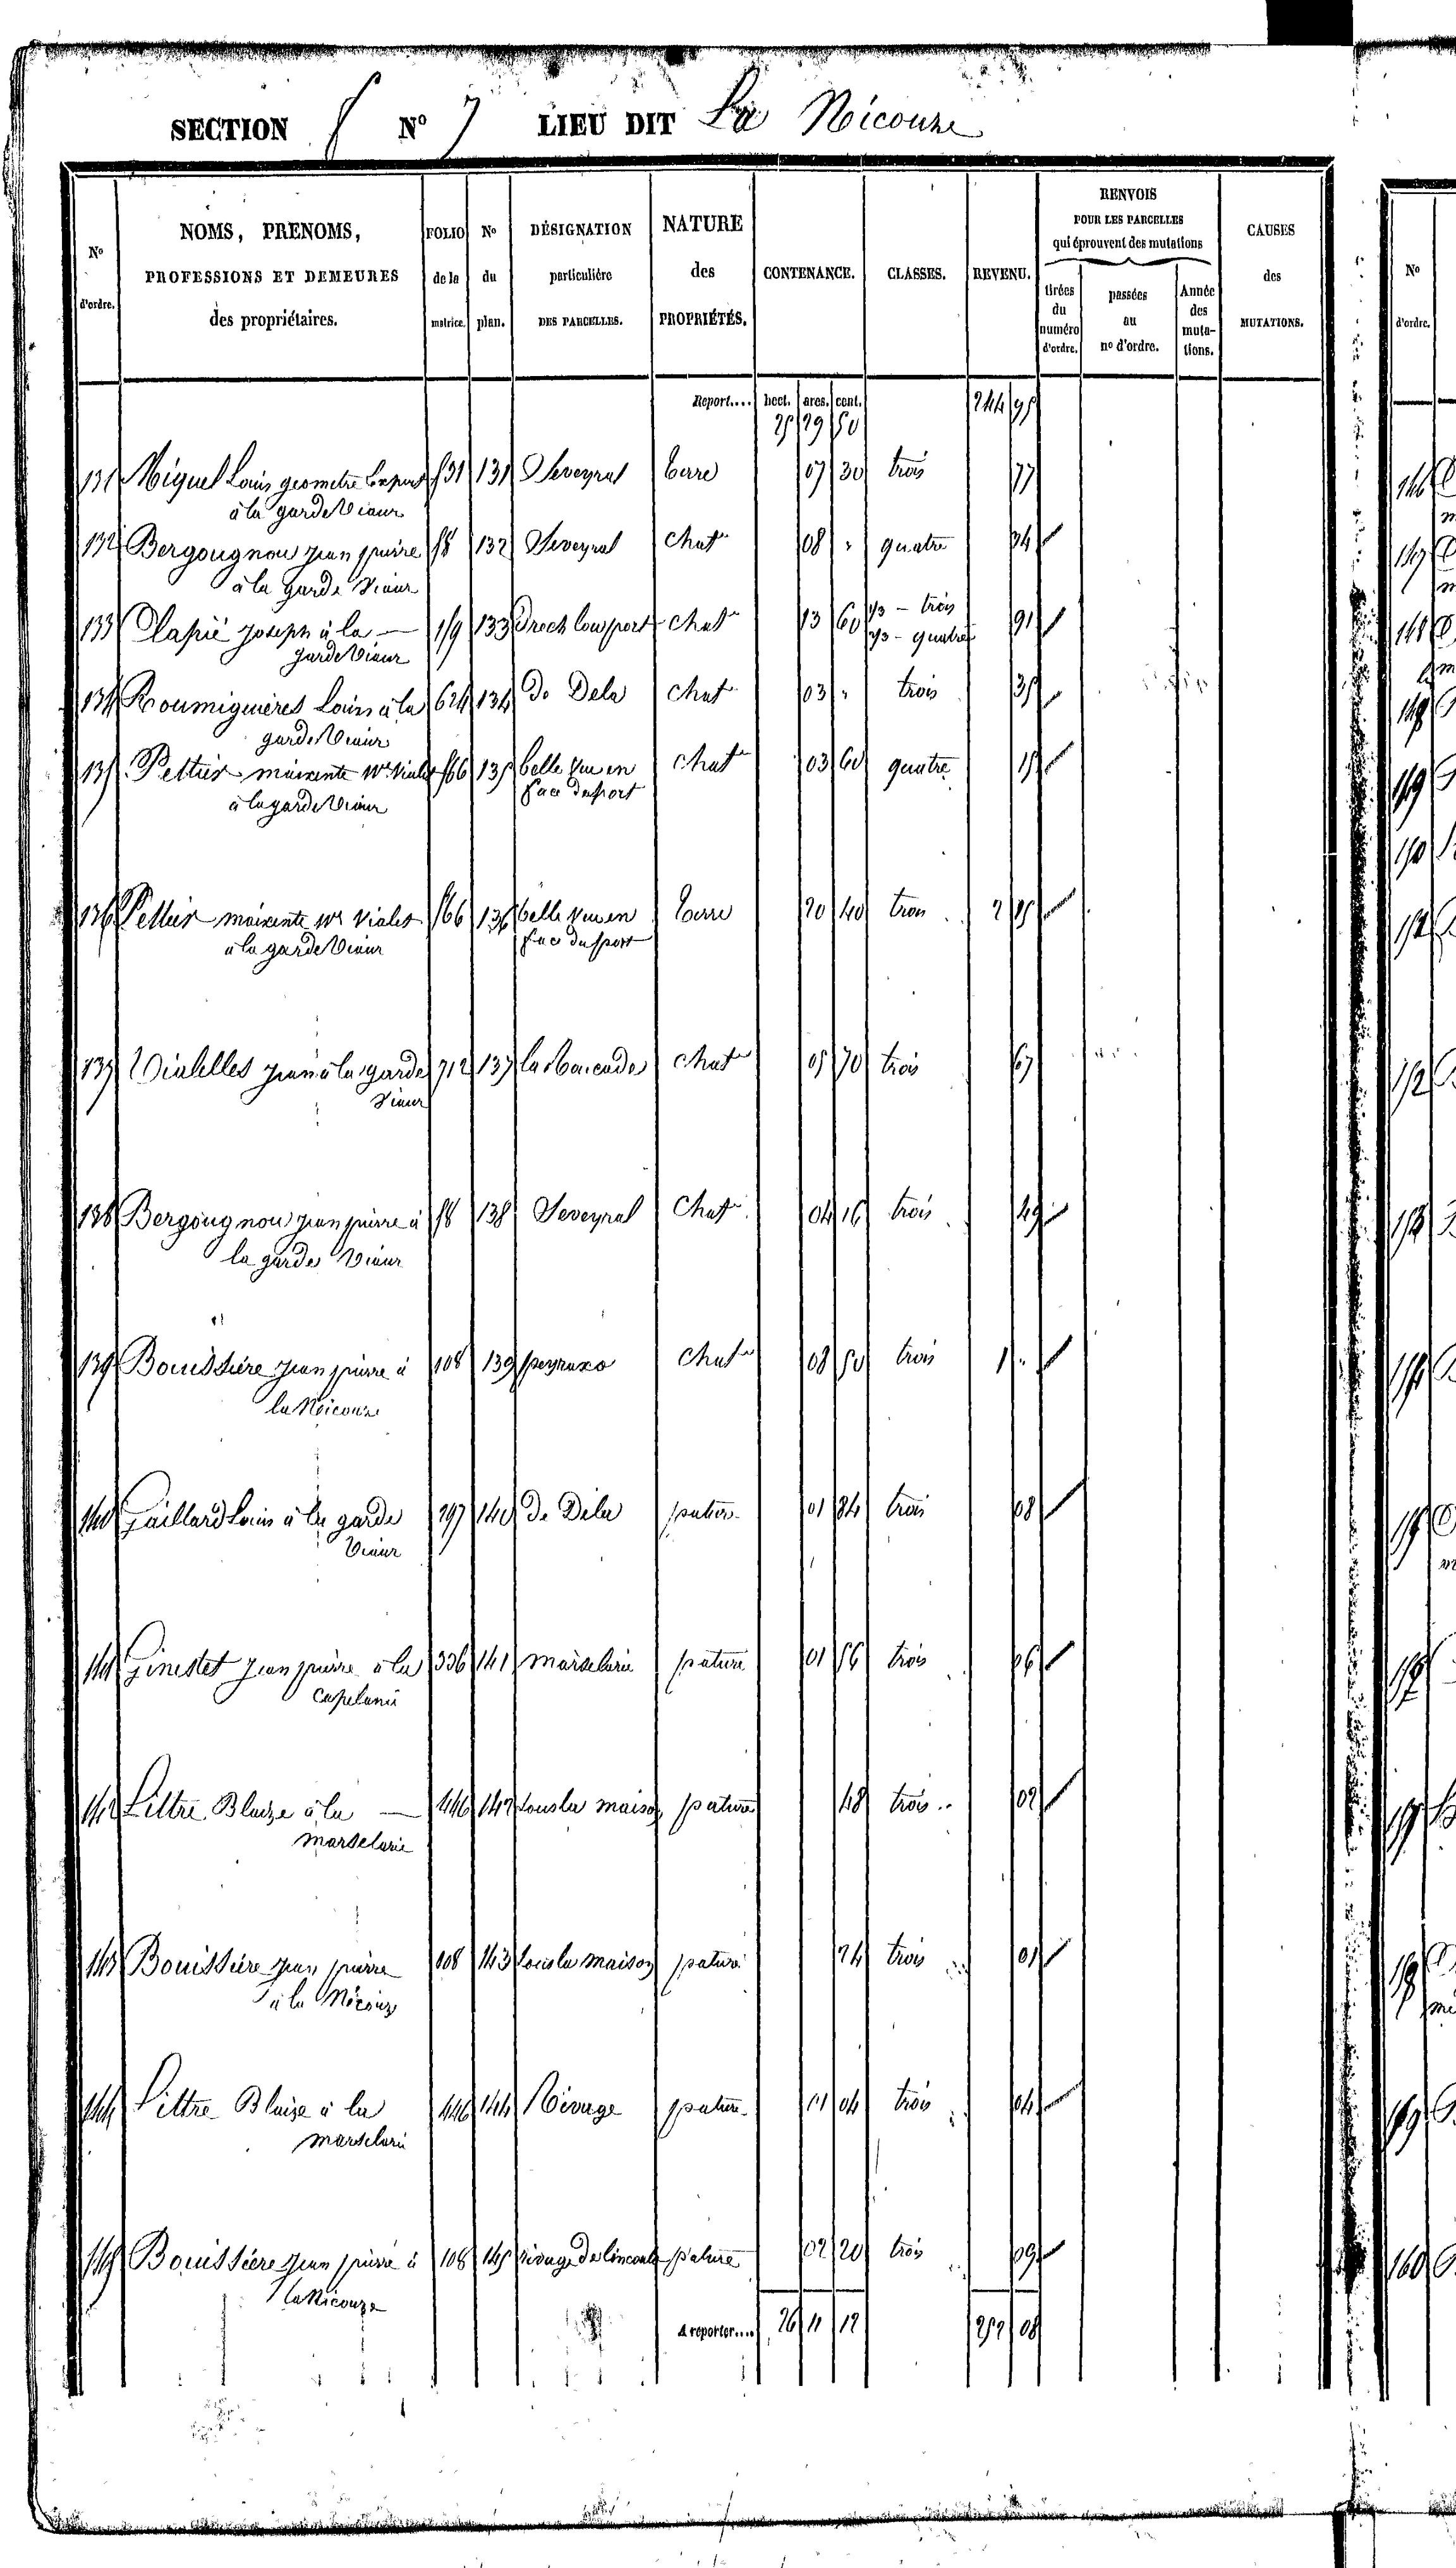 SECTION f N° 7 LIEU DIT La Nicouze
N° d'ordre.
NOMS, PRENOMS, PROFESSIONS ET DEMEURES des propriétaires.
FOLIO de la matrice.
N° du plan.
DÉSIGNATION particulière DES PARCELLES.
NATURE des PROPRIÉTÉS.
CONTENANCE.
CLASSES.
REVENU.
RENVOIS POUR LES PARCELLES qui éprouvent des mutations
tirées du numéro d'ordre.
passées au n° d'ordre.
Année des mutations.
CAUSES des MUTATIONS.
N° d'ordre.
Report.... hect. ares. cent.
25 29 50 244 95
131 Miguel Louis geometre 531 131 Seveyral terre 07 30 trois 77
à la garde Viaur
132 Bergougnou jean pierre 58 132 Seveyral chat 08 " quatre 34
à la garde Viaur
133 Clapié joseph à la — 159 133 chat 13 60 1/3 - trois 91
garde Viaur 2/3 - quatre
134 Roumiguières Louis à la 624 134 de Dela chat 03 " trois 35
garde Viaur
135 Pettier maixente 566 135 belle vue en chat 03 60 quatre 15
à la garde Viaur face du port
136 Pettier maixente 566 136 belle vue en terre 20 40 trois 2 25
à la garde Viaur face du port
137 Vialelles jean à la garde 712 137 chat 05 70 trois 67
Viaur
138 Bergougnou jean pierre à 58 138 Seveyral chat 04 16 trois 49
la garde Viaur
139 Bouissière jean pierre à 108 139 chat 08 50 trois 1 "
la Nicouze
140 Gaillard Louis à la garde 297 140 de Dela pature 01 84 trois 08
Viaur
141 Ginestet jean pierre à la 336 141 marselarie pature 01 56 trois 06
capelanie
142 Littre Blaize à la — 446 142 sous la maison pature 48 trois 02
marselarie
143 Bouissière jean pierre 108 143 sous la maison pature 24 trois 01
à la Nicouze
144 Littre Blaize à la 446 144 Rivage pature 01 04 trois 04
marselarie
145 Bouissière jean pierre à 108 145 rivage de pature 02 20 trois 09
la Nicouze
A reporter.... 26 11 12 252 08